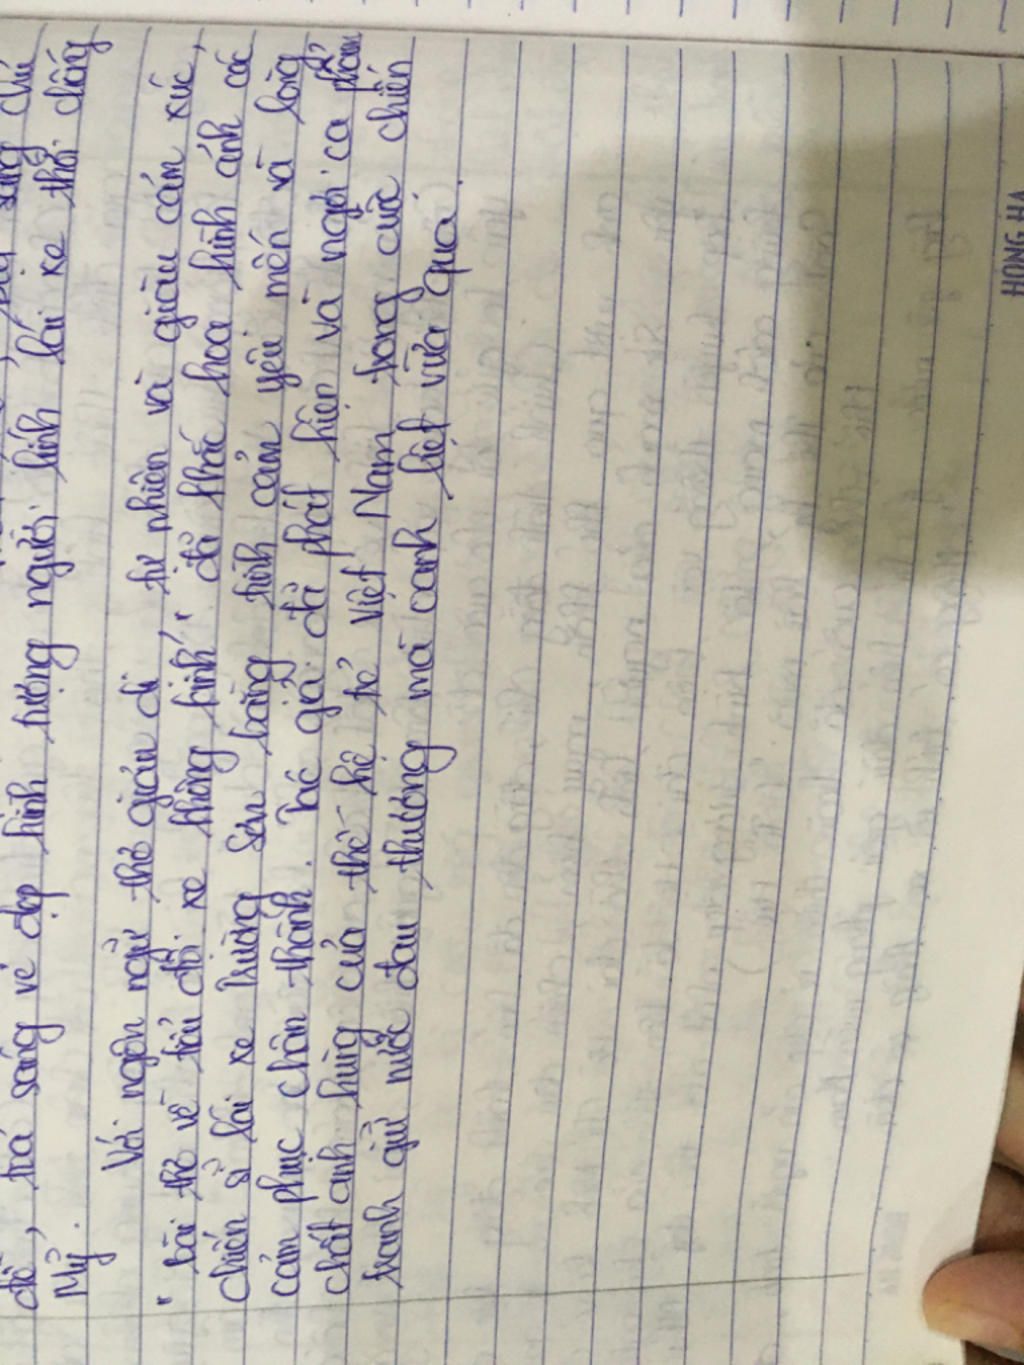 chú
đề, toả sáng vẻ đẹp hình tượng người lính lái xe thời chống
Mỹ.
Với ngôn ngữ thơ giản dị, tự nhiên và giàu cảm xúc,
"bài thơ về tiểu đội xe không kính" đã khắc hoạ hình ảnh các
chiến sĩ lái xe Trường Sơn bằng tình cảm yêu mến và lòng
cảm phục chân thành. Tác giả đã phát hiện và ngợi ca phẩm
chất anh hùng của thế hệ trẻ Việt Nam trong cuộc chiến
tranh giữ nước đau thương mà oanh liệt vừa qua.
HONG HA